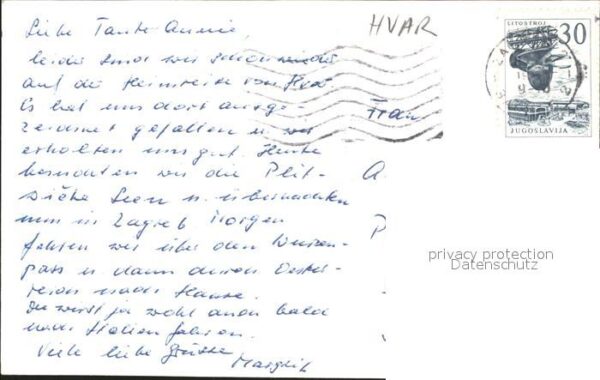 HVAR
LITOSTROJ
30
JUGOSLAVIJA
Liebe Tante Annie,
leider sind wir schon wieder
auf der Heimreise von Hvar
Es hat uns dort ausge-
zeichnet gefallen u. wir
erholten uns gut. Heute
besuchten wir die Plit-
wicer Seen u. übernachten
nun in Zagreb. Morgen
fahren wir über den Wurzen-
pass u. dann durch Öster-
reich nach Hause.
Du wirst ja wohl auch bald
nach Italien fahren.
Viele liebe Grüsse
Margrit
Frau
A
P
privacy protection
Datenschutz